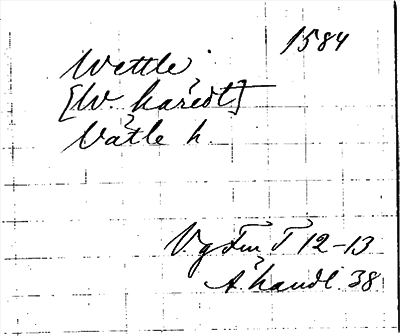 1584
Wettle
[W. häredt]
Vätle h.
V.g Fm T 12-13
Ä handl. 38